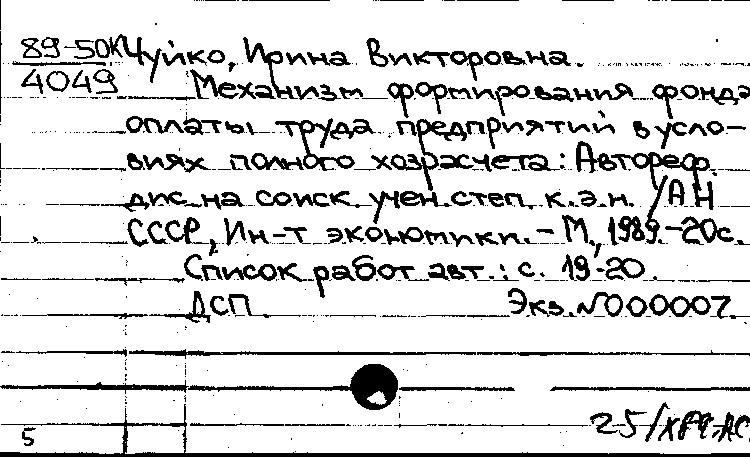 89-50К Чуйко, Ирина Викторовна.
4049 Механизм формирования фонда
оплаты труда предприятий в усло-
виях полного хозрасчета: Автореф.
дис. на соиск. учен. степ. к.э.н. /АН
СССР, Ин-т экономики. - М., 1989. - 20с.
Список работ авт.: с. 19-20.
ДСП. Экз. N000007.
5